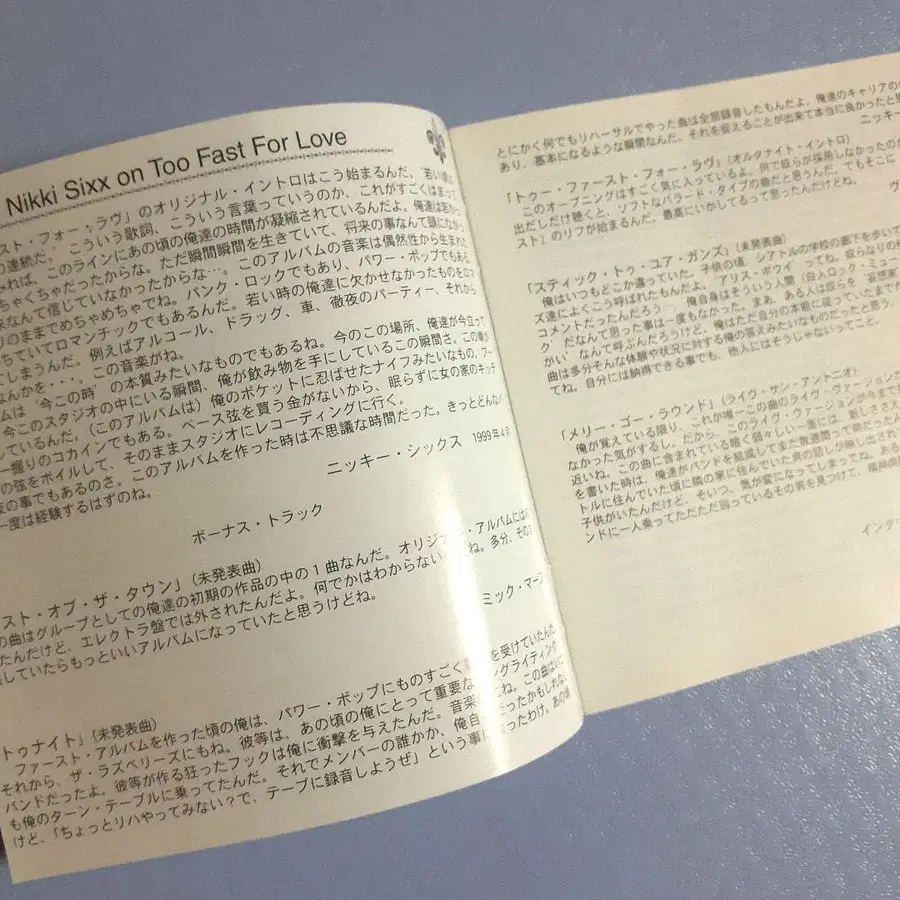 Nikki Sixx on Too Fast For Love
スト・フォー・ラヴ」のオリジナル・イントロはこう始まるんだ、
の連続だ。こういう歌詞、こういう言葉っていうのか、これがすごくはまって
れば、このラインにあの頃の俺達の時間が凝縮されているんだよ。俺達は
ちゃくちゃだったからな。ただ瞬間瞬間を生きていて、将来の事なんて頭になか
なんて信じていなかったからな…。このアルバムの音楽は偶然性から生まれた
りのままでめちゃめちゃでね。パンク・ロックでもあり、パワー・ポップでもある
ちていてロマンチックでもあるんだ。若い時の俺達に欠かせなかったものを
こしまうんだ。例えばアルコール、ドラッグ、車、徹夜のパーティー、それから
なんかを・・・。この音楽がね。
ムは 今この時 の本質みたいなものでもあるね。今のこの場所、俺達が今立って
今このスタジオの中にいる瞬間、俺が飲み物を手にしているこの瞬間さ。この
しているんだ。（このアルバムは）俺のポケットに忍ばせたナイフみたいなもの、
一握りのコカインでもある。ベース弦を買う金がないから、眠らずに女の家のキッチ
の弦をボイルして、そのままスタジオにレコーディングに行く。
来の事でもあるのさ。このアルバムを作った時は不思議な時間だった。きっとどんな
一度は経験するはずのね。
ニッキー・シックス 1999年4月
ボーナス・トラック
スト・オブ・ザ・タウン」（未発表曲）
の曲はグループとしての俺達の初期の作品の中の1曲なんだ。オリジナル・アルバムには
たんだけど、エレクトラ盤では外されたんだよ。何でかはわからない
していたらもっといいアルバムになっていたと思うけどね。
ミック・マー
トゥナイト」（未発表曲）
ファースト・アルバムを作った頃の俺は、パワー・ポップにものすごく
それから、ザ・ラズベリーズにもね。彼等は、あの頃の俺にとって重要な
バンドだったよ。彼等が作る狂ったフックは俺に衝撃を与えたんだ。音楽
も俺のターン・テーブルに乗ってたんだ。それでメンバーの誰かが、俺自
けど、「ちょっとリハやってみない？で、テープに録音しようぜ」という事に
とにかく何でもリハーサルでやった曲は全部録音したもんだよ。俺達のキャリアの
あり、基本になるような瞬間なんだ。それを捉えることが出来て本当に良かったと
ニッキー
「トゥー・ファースト・フォー・ラヴ」（オルタナイト・イントロ）
このオープニングはすごく気に入っているよ。何で奴らが採用しなかったのか
出だしだけ聴くと、ソフトなバラード・タイプの曲だと思うんだ。でもそこに
スト」のリフが始まるんだ。最高にいかしてるって思ったんだけどね。
「スティック・トゥ・ユア・ガンズ」（未発表曲）
俺はいつもどこか違っていた。子供の頃、シアトルの学校の廊下を歩いて
ズ達によくこう呼ばれたもんだよ。 アリス・ボウイ ってね。奴らなりの
コメントだったんだろう… 俺自身はそういう人間（白人ロック・ミュー
ク だなんて思った事は一度もなかった。まあ、ある人は奴らを
がい なんて呼ぶんだろうけど、俺はただ自分の本能に従っていたまでが
曲は多分そんな体験や状況に対する俺の答えみたいなものだったと思う。
てね。自分には納得できる事でも、他人にはそうじゃないってこと。
「メリー・ゴー・ラウンド」（ライヴ・サン・アントニオ）
俺が覚えている限り、これが唯一この曲のライヴ・ヴァージョンが
なかった気がするし、だから、このライヴ・ヴァージョンが今まで
近いね。この曲に含まれている暗く弱々しい一面には、
を書いた時は、俺達がバンドを結成してまだ数週間って時だったんだ
トルに住んでいた頃に隣の家に住んでいた男の話しが映し出され
子供がいたんだけど、そいつ、気が変になってしまってね。ある
ンドに一人乗ってただただ回っているその男を見つけて、精神病
インター